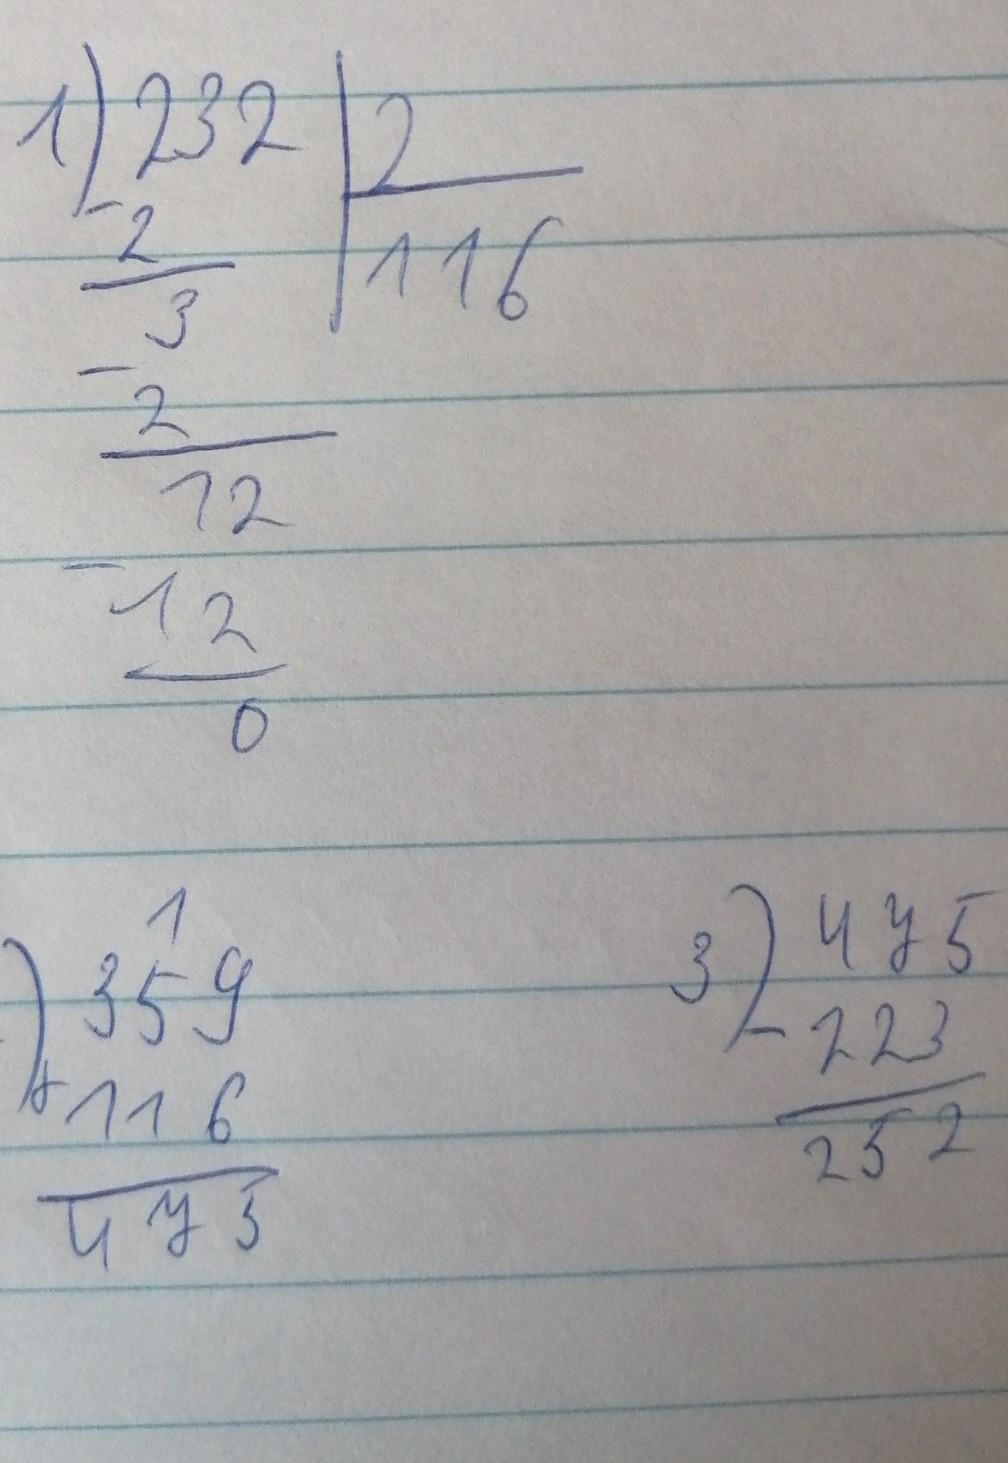 1) 232 | 2
- 2
116
3
- 2
12
- 12
0
1
) 359
+ 116
475
3) 475
- 223
252